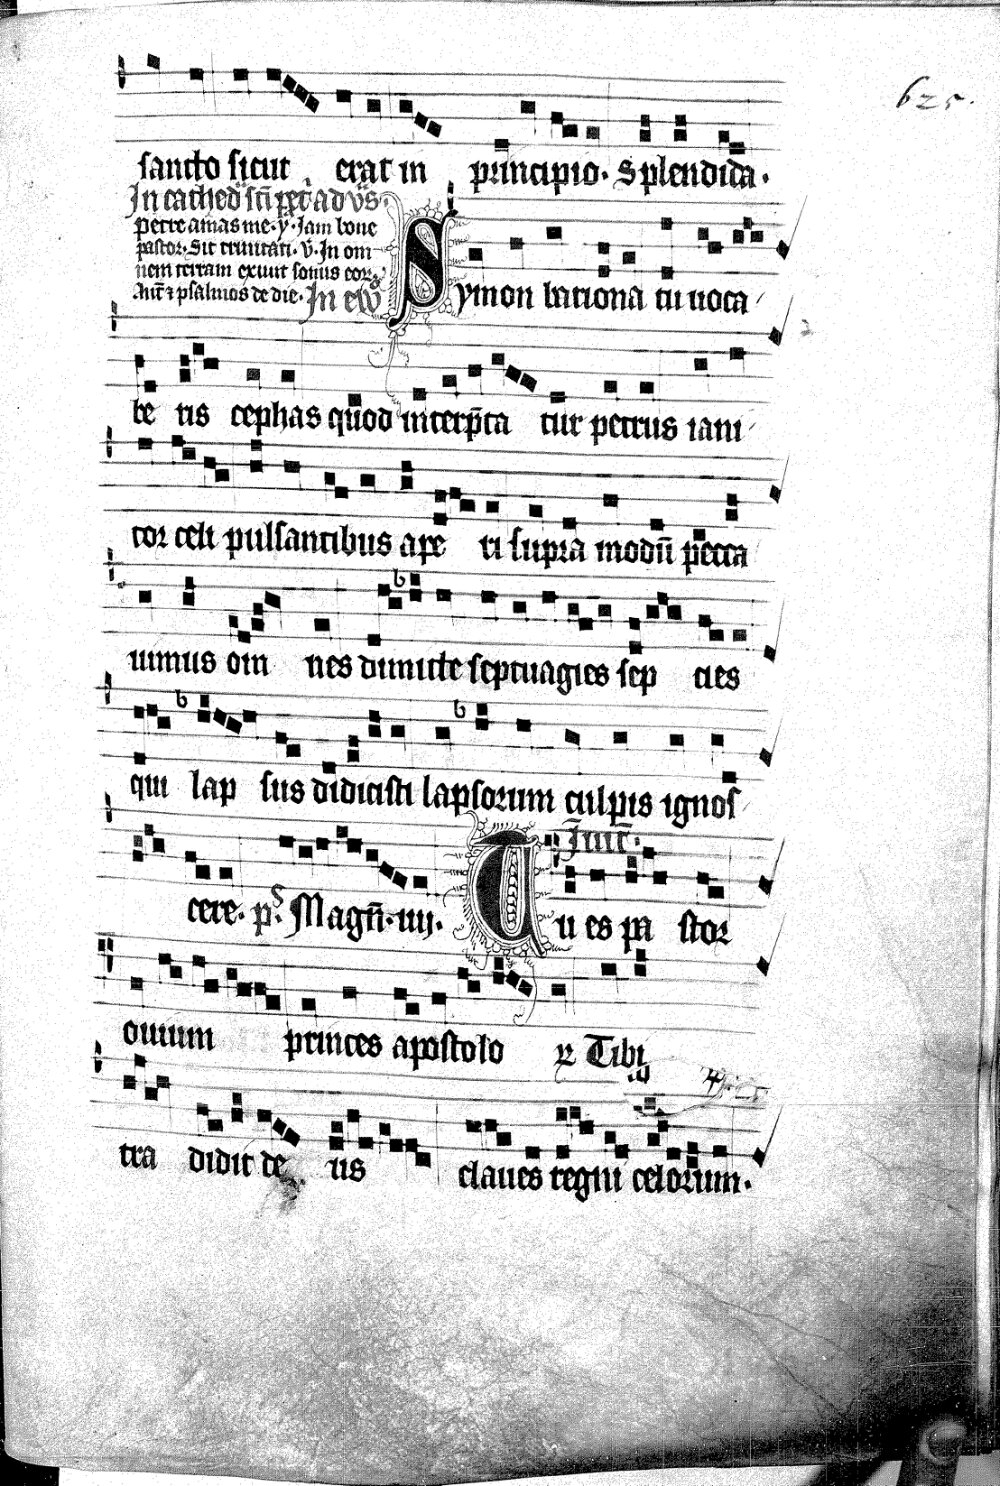 625.
sancto sicut erat in principio. Splendida.
In cathed' sci pet ad vs.
Petre amas me. y. Iam bone
pastor. Sit trinitati. v. In om
nem terram exivit sonus eor.
Ant 7 psalmos de die. In ew
Symon bariona tu uoca
be ris cephas quod interp̄ta tur petrus iani
tor celi pulsantibus ape ri supra modū pecca
uimus om nes dimitte septuagies sep ties
qui lap sus didicisti lapsorum culpis ignos
Inuit.
cere. ps. Magn̄. iiij. Tu es pa stor
ouium princeps apostolo ꝝ Tibi
tra didit de us claues regni celorum.